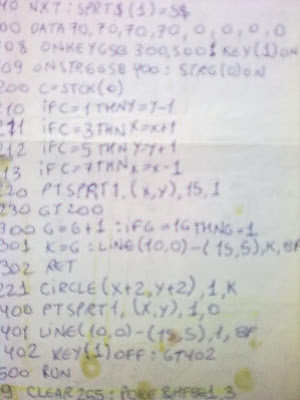 40 NXT : SPRT$(1)=S$
00 DATA 70, 70, 70, 70, 0, 0, 0, 0
108 ONKEYGSB 300,500: KEY(1)ON
109 ONSTRGGSB 400 : STRG(0)ON
200 C=STCK(0)
210 iFC=1THNY=Y-1
211 iFC=3THNX=X+1
212 iFC=5THNY=Y+1
13 iFC=7THNX=X-1
220 PTSPRT1, (X,Y), 15, 1
230 GT200
300 G=G+1 : iFG=16THNG=1
301 K=G : LiNE(10,0)-(15,5),K,BF
302 RET
221 CiRCLE(X+2,Y+2),1,K
400 PTSPRT1, (X,Y), 1, 0
401 LiNE(10,0)-(15,5),1,BF
402 KEY(1)OFF : GT402
500 RUN
9 CLEAR255 : POKE&HFBB1,3